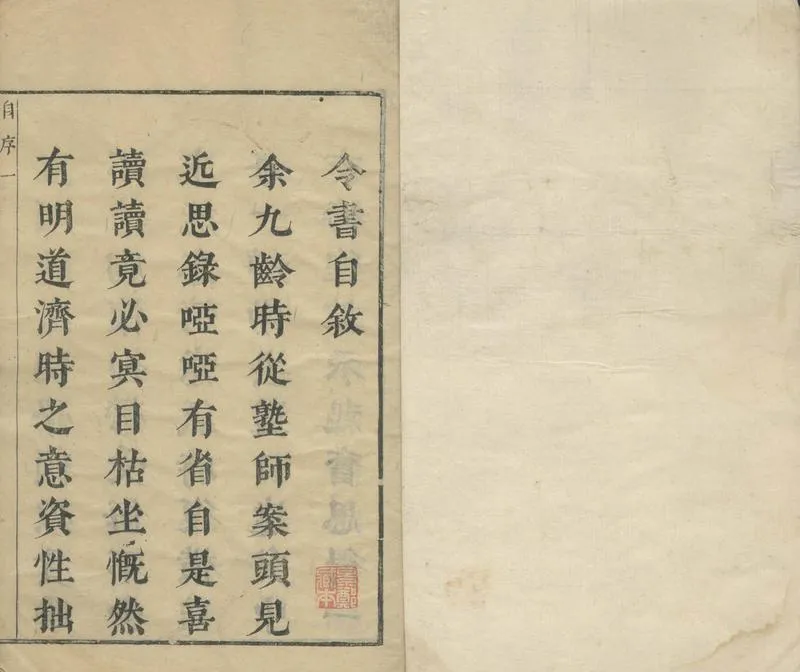 令書自敘
余九齡時從塾師案頭見
近思錄啞啞有省自是喜
讀讀竟必㝠目枯坐慨然
有明道濟時之意資性拙
自序一